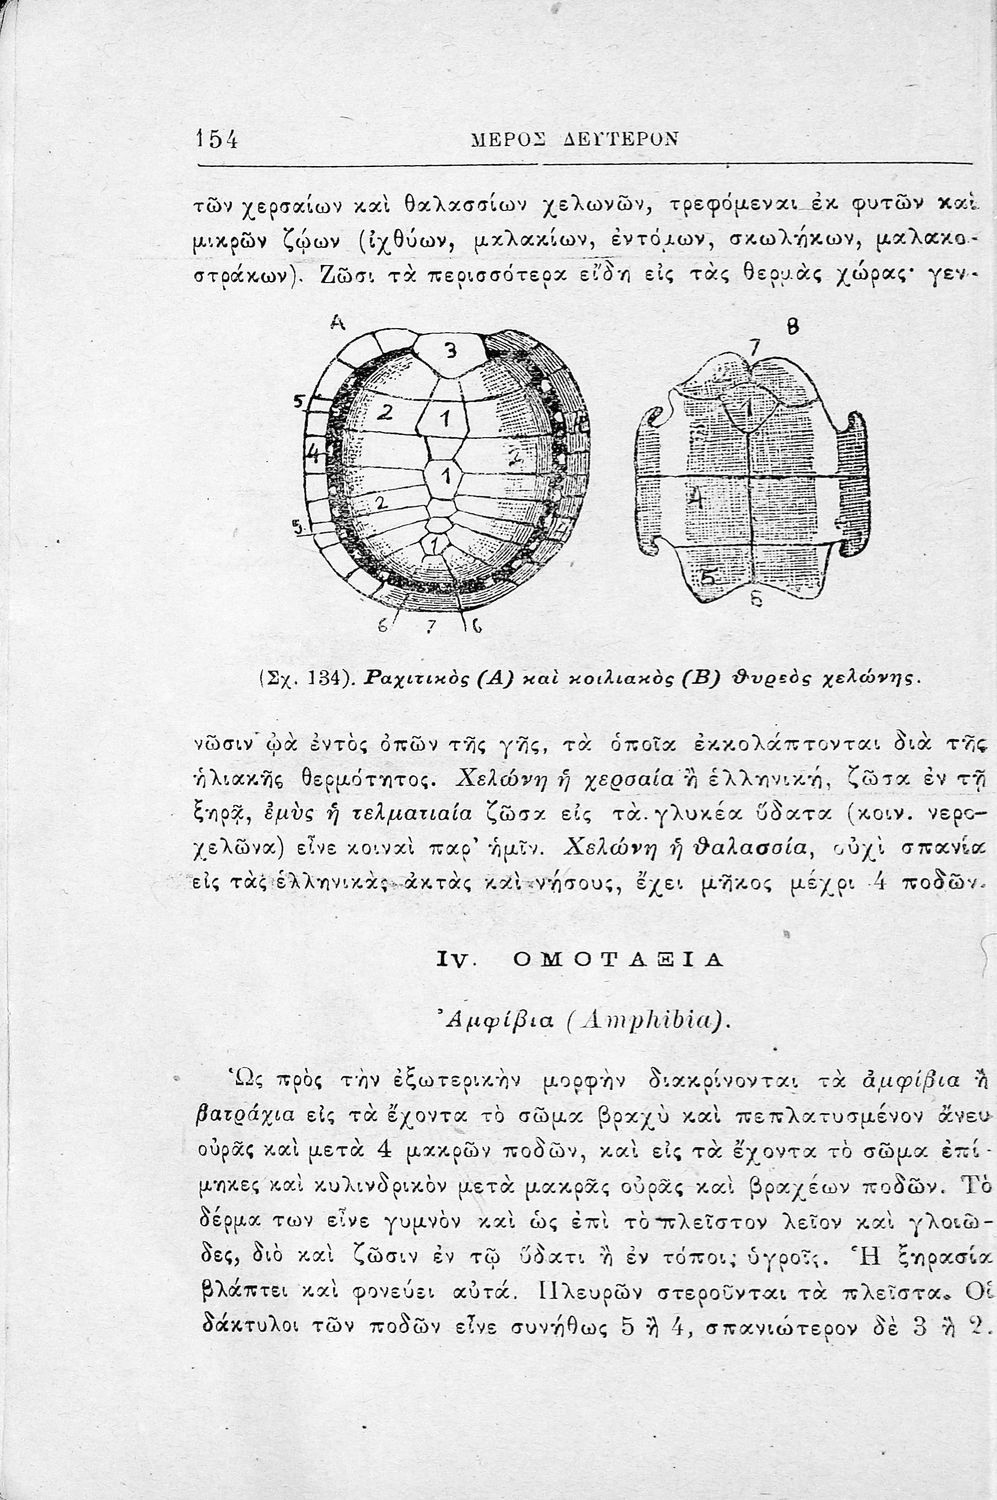 154 ΜΕΡΟΣ ΔΕΥΤΕΡΟΝ
τῶν χερσαίων καὶ θαλασσίων χελωνῶν, τρεφόμεναι ἐκ φυτῶν καὶ
μικρῶν ζῴων (ἰχθύων, μαλακίων, ἐντόμων, σκωλήκων, μαλακο-
στράκων). Ζῶσι τὰ περισσότερα εἴδη εἰς τὰς θερμὰς χώρας· γεν-
A B
7
3
5 2 1
1
4 1 2
4
2
5 1
5
6 7 6 6
(Σχ. 134). Ραχιτικὸς (Α) καὶ κοιλιακὸς (Β) θυρεὸς χελώνης.
νῶσιν ᾠὰ ἐντὸς ὀπῶν τῆς γῆς, τὰ ὁποῖα ἐκκολάπτονται διὰ τῆς
ἡλιακῆς θερμότητος. Χελώνη ἡ χερσαία ἢ ἑλληνική, ζῶσα ἐν τῇ
ξηρᾷ, ἐμὺς ἡ τελματιαία ζῶσα εἰς τὰ γλυκέα ὕδατα (κοιν. νερο-
χελῶνα) εἶνε κοιναὶ παρ' ἡμῖν. Χελώνη ἡ θαλασσία, οὐχὶ σπανία
εἰς τὰς ἑλληνικὰς ἀκτὰς καὶ νήσους, ἔχει μῆκος μέχρι 4 ποδῶν.
IV. ΟΜΟΤΑΞΙΑ
Ἀμφίβια (Amphibia).
Ὡς πρὸς τὴν ἐξωτερικὴν μορφὴν διακρίνονται τὰ ἀμφίβια ἢ
βατράχια εἰς τὰ ἔχοντα τὸ σῶμα βραχὺ καὶ πεπλατυσμένον ἄνευ
οὐρᾶς καὶ μετὰ 4 μακρῶν ποδῶν, καὶ εἰς τὰ ἔχοντα τὸ σῶμα ἐπί-
μηκες καὶ κυλινδρικὸν μετὰ μακρᾶς οὐρᾶς καὶ βραχέων ποδῶν. Τὸ
δέρμα των εἶνε γυμνὸν καὶ ὡς ἐπὶ τὸ πλεῖστον λεῖον καὶ γλοιῶ-
δες, διὸ καὶ ζῶσιν ἐν τῷ ὕδατι ἢ ἐν τόποις ὑγροῖς. Ἡ ξηρασία
βλάπτει καὶ φονεύει αὐτά. Πλευρῶν στεροῦνται τὰ πλεῖστα. Οἱ
δάκτυλοι τῶν ποδῶν εἶνε συνήθως 5 ἢ 4, σπανιώτερον δὲ 3 ἢ 2.